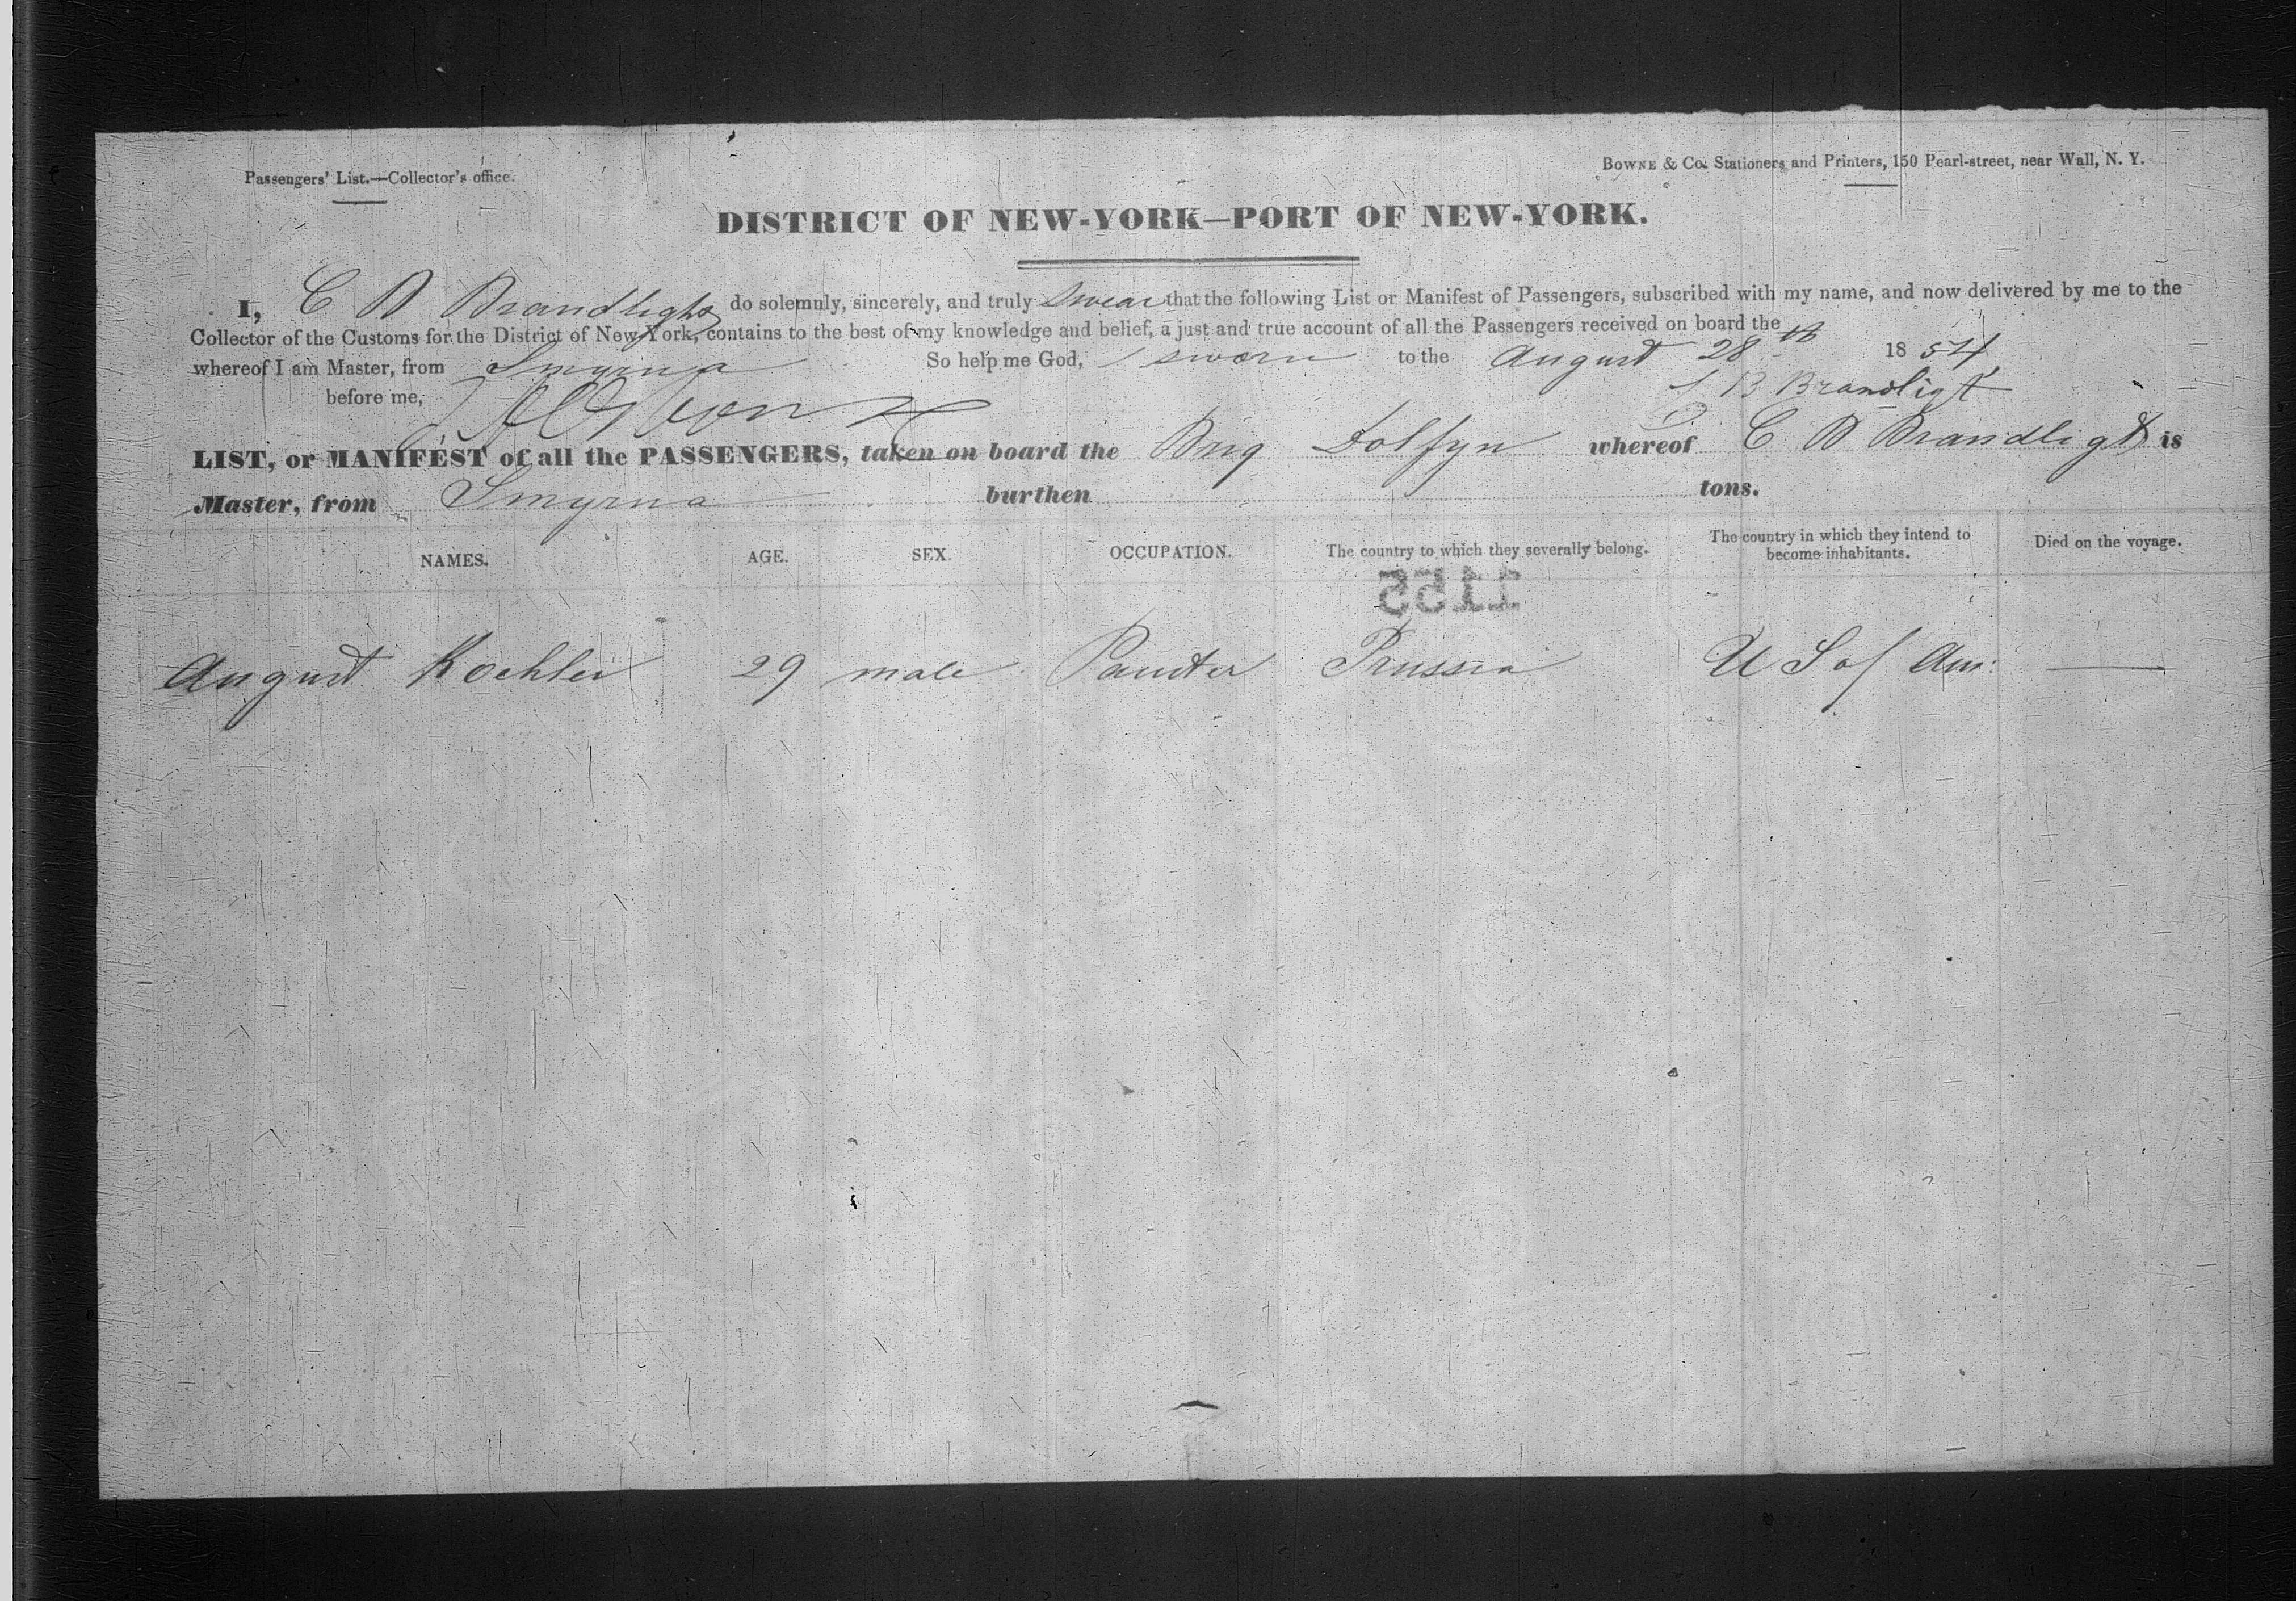 Passengers' List.—Collector's office.
Bowne & Co. Stationers and Printers, 150 Pearl-street, near Wall, N. Y.
DISTRICT OF NEW-YORK—PORT OF NEW-YORK.
I, C B Brandlight do solemnly, sincerely, and truly swear that the following List or Manifest of Passengers, subscribed with my name, and now delivered by me to the
Collector of the Customs for the District of New York, contains to the best of my knowledge and belief, a just and true account of all the Passengers received on board the
whereof I am Master, from Smyrna So help me God, sworn to the August 28th 1854
before me, B Brandligt
LIST, or MANIFEST of all the PASSENGERS, taken on board the Brig Dolfyn whereof C B Brandligt is
Master, from Smyrna burthen tons.
NAMES. AGE. SEX. OCCUPATION. The country to which they severally belong. The country in which they intend to become inhabitants. Died on the voyage.
1155
August Koehler 29 male Painter Prussia U S of Am: —